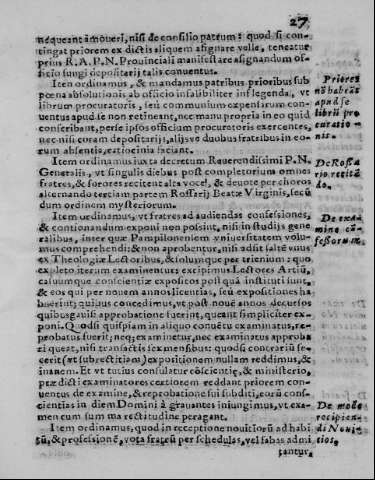 27
nequeant amoueri, nisi de consilio patrum: quod si con-
tingat priorem ex dictis aliquem asignare velle, teneatur
prius R.A.P.N. Prouinciali manifestare asignandum of-
ficio fungi depositarij talis conuentus.
Item ordinamus, & mandamus patribus prioribus sub
poena absolutionis ab officio infalibiliter infligenda, vt
librum procuratoris, seu communium expensarum con-
uentus apud se non retineant, nec manu propria in eo quid
conscribant, per se ipsos officium procuratoris exercentes,
nec nisi coram depositarij, alijsve duobus fratribus in eo-
rum absentis, ratiocinia faciant.
Priores
nō habeāt
apud se
librū pro
curatio-
nis.
Item ordinamus iuxta decretum Reuerendissimi P.N.
Generalis, vt singulis diebus post completorium omnes
fratres, & sorores recitent alta voce, & deuote per choros
alternando tertiam partem Rossarij Beatæ Virginis, secū
dum ordinem mysteriorum.
De Rosa
rio recitā
do.
Item ordinamus, vt fratres ad audiendas confessiones,
& contionandum exponi non possint, nisi in studijs gene
ralibus, inter quæ Pampilonensem vniuersitatem volu-
mus comprehendi: & non aprobentur, nisi adsit saltē vnus
ex Theologiæ Lectoribus, & solumque per trienium: quo
expleto iterum examinentur: excipimus Lectores Artiū,
casuumque conscientiæ expositos post quā instituti sunt,
& eos qui per nouem annos licentias, seu expositiones ha
buerint; quibus concedimus, vt post nouē annos decursos
quibus ganisi approbatione fuerint, queant simpliciter ex-
poni. Quod si quispiam in aliquo conuētu examinatus, re-
probatus fuerit; neq; examinetur, nec examinatus approba
ri queat, nisi transactis sex mensibus: quod si contrariū fe-
cerit (vt subrectitiam) expositionem nullam reddimus, &
inanem. Et vt tutius consulatur cōscientiæ, & ministerio,
prædicti examinatores certiorem reddant priorem con-
uentus de examine, & reprobatione sui subditi, eorū cons-
cientias in diem Domini à grauantes iniungimus, vt exa-
men cum summa rectitudine peragant.
De exa-
mine cō-
fessorum.
Item ordinamus, quod in receptione nouitiorū ad habi
tū, & professionē, vota fratrū per schedulas, vel fabas admi
De modo
recipien-
di Noui-
tios.
tantur,